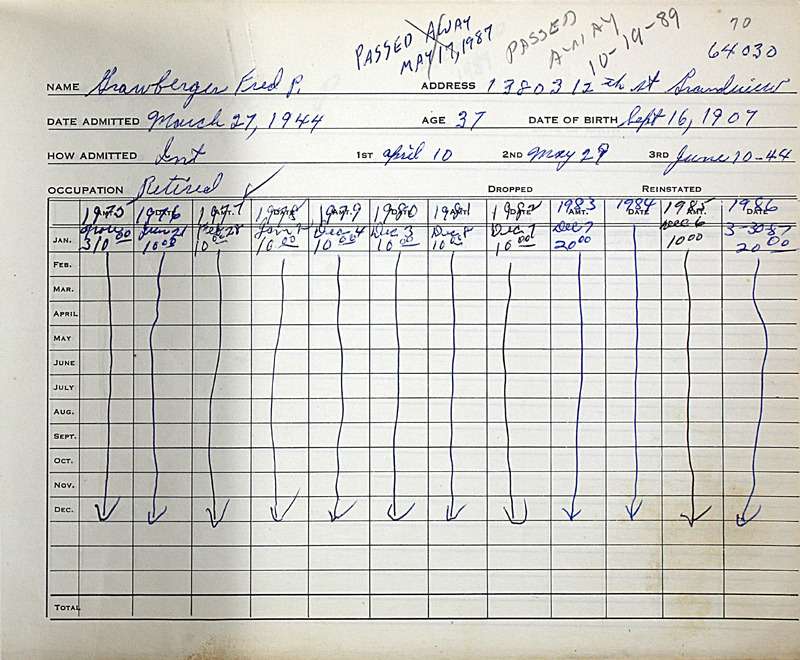 PASSED AWAY MAY 17, 1987
PASSED AWAY 10-19-89
70
64030
NAME Grawberger Fred P. ADDRESS 13803 12th st Grandview
DATE ADMITTED March 27, 1944 AGE 37 DATE OF BIRTH Sept 16, 1907
HOW ADMITTED Int 1ST april 10 2ND May 29 3RD June 10-44
OCCUPATION Retired DROPPED REINSTATED
1975 1976 1977 1978 1979 1980 1981 1982 1983 1984 1985 1986
AMT. DATE AMT. DATE AMT. DATE AMT. DATE AMT. DATE AMT. DATE
JAN. Jan 21 Feb 28 Jan Dec 4 Dec 3 Dec 8 Dec 7 Dec 7 Dec 6 3-30-87
10 00 10 00 10 00 10 00 10 00 10 00 10 00 20 00 10 00 20 00
FEB.
MAR.
APRIL
MAY
JUNE
JULY
AUG.
SEPT.
OCT.
NOV.
DEC.
TOTAL